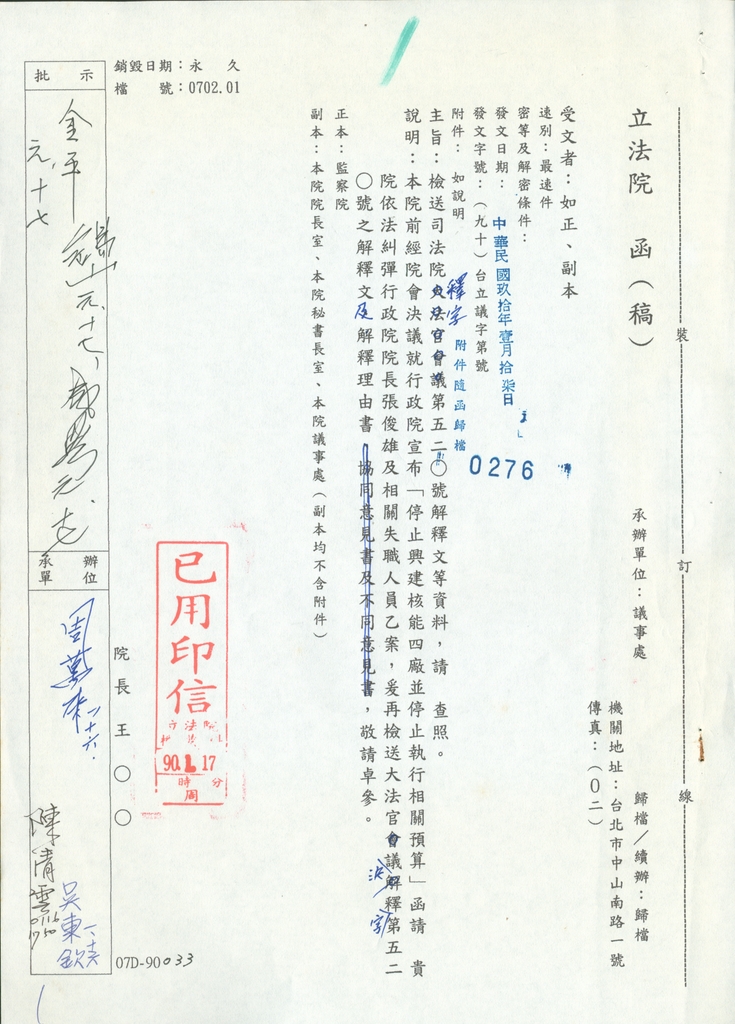 裝
訂
線
立法院　函（稿）
承辦單位：議事處
歸檔／續辦：歸檔
機關地址：台北市中山南路一號
傳真：（０二）
受文者：如正、副本
速別：最速件
密等及解密條件：
發文日期：中華民國玖拾年壹月拾柒日
發文字號：（九十）台立議字第號
0276
附件：如說明
附件隨函歸檔
主旨：檢送司法院大法官會議第五二〇號解釋文等資料，請　查照。
釋字
說明：本院前經院會決議就行政院宣布「停止興建核能四廠並停止執行相關預算」函請　貴
院依法糾彈行政院院長張俊雄及相關失職人員乙案，爰再檢送大法官會議解釋第五二
〇號之解釋文及解釋理由書、協同意見書及不同意見書，敬請卓參。
正本：監察院
副本：本院院長室、本院秘書長室、本院議事處（副本均不含附件）
已用印信
90.1.17
時 分
周
院長 王〇〇
銷毀日期：永　久
檔　　號：0702.01
批　示
金平
元、十七
元、十七、
承辦
單位
周萬來
一、十六、
陳清雲
吳東欽
07D-90033